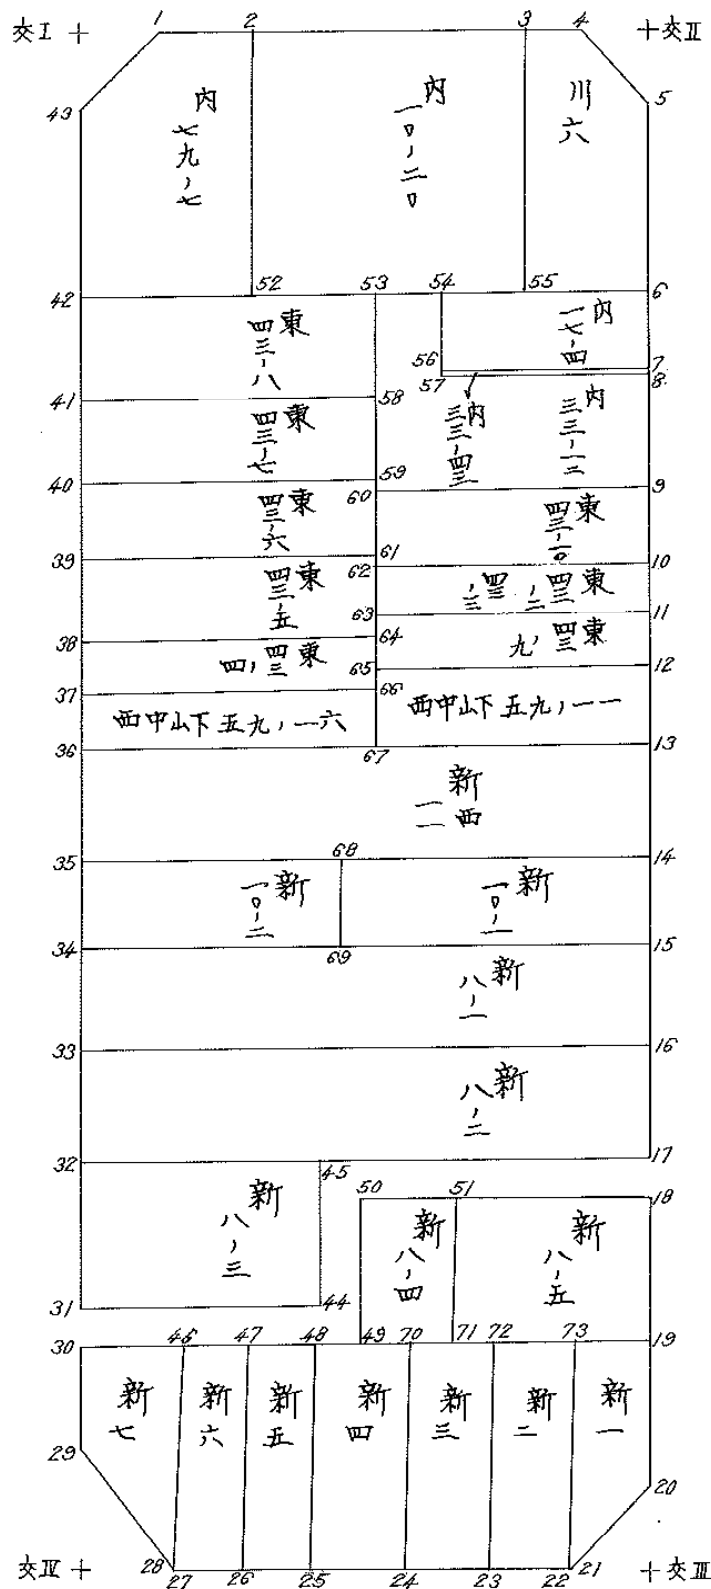 交I 1 2 3 4 交II
43 5
内 七九,七
内 一〇,二〇
川 六
42 52 53 54 55 6
東 四三,八
内 一七,四
56 7
57 8
41 58
東 四三,七
内 三三,四三
内 三三,一三
40 59 60 9
東 四三,六
東 四三,一〇
39 61 62 10
東 四三,五
東 四三,二,四三,三
63 11
38 64
東 四三,四
東 四三,九
65 12
37 66
西中山下五九,一六
西中山下五九,一一
36 67 13
新西 一一
35 68 14
新 一〇,二
新 一〇,一
34 69 15
新 八,一
33 16
新 八,二
32 45 17
50 51 18
新 八,三
新 八,四
新 八,五
31 44
30 46 47 48 49 70 71 72 73 19
新七 新六 新五 新四 新三 新二 新一
29 20
交IV 28 27 26 25 24 23 22 21 交III